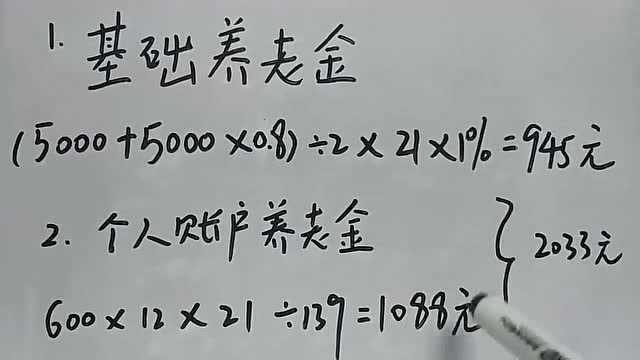 1. 基础养老金
(5000+5000×0.8)÷2×21×1%=945元
2. 个人账户养老金
2033元
600×12×21÷139=1088元